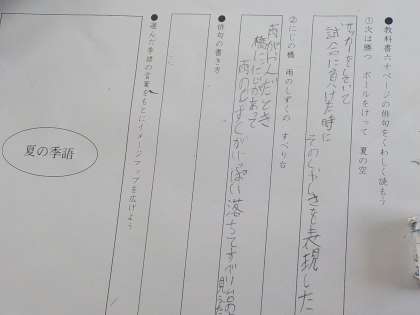 ●教科書六十ページの俳句をくわしく読もう
①次は勝つ ボールをけって 夏の空
サッカーをしていて
試合に負けた時に
そのくやしさを表現した
②にじの橋 雨のしずくの すべり台
雨がやんだとき
橋ににじがあって
雨のしずくが 落ちてすべり台の
●俳句の書き方
●選んだ季語の言葉をもとにイメージマップを広げよう
夏の季語